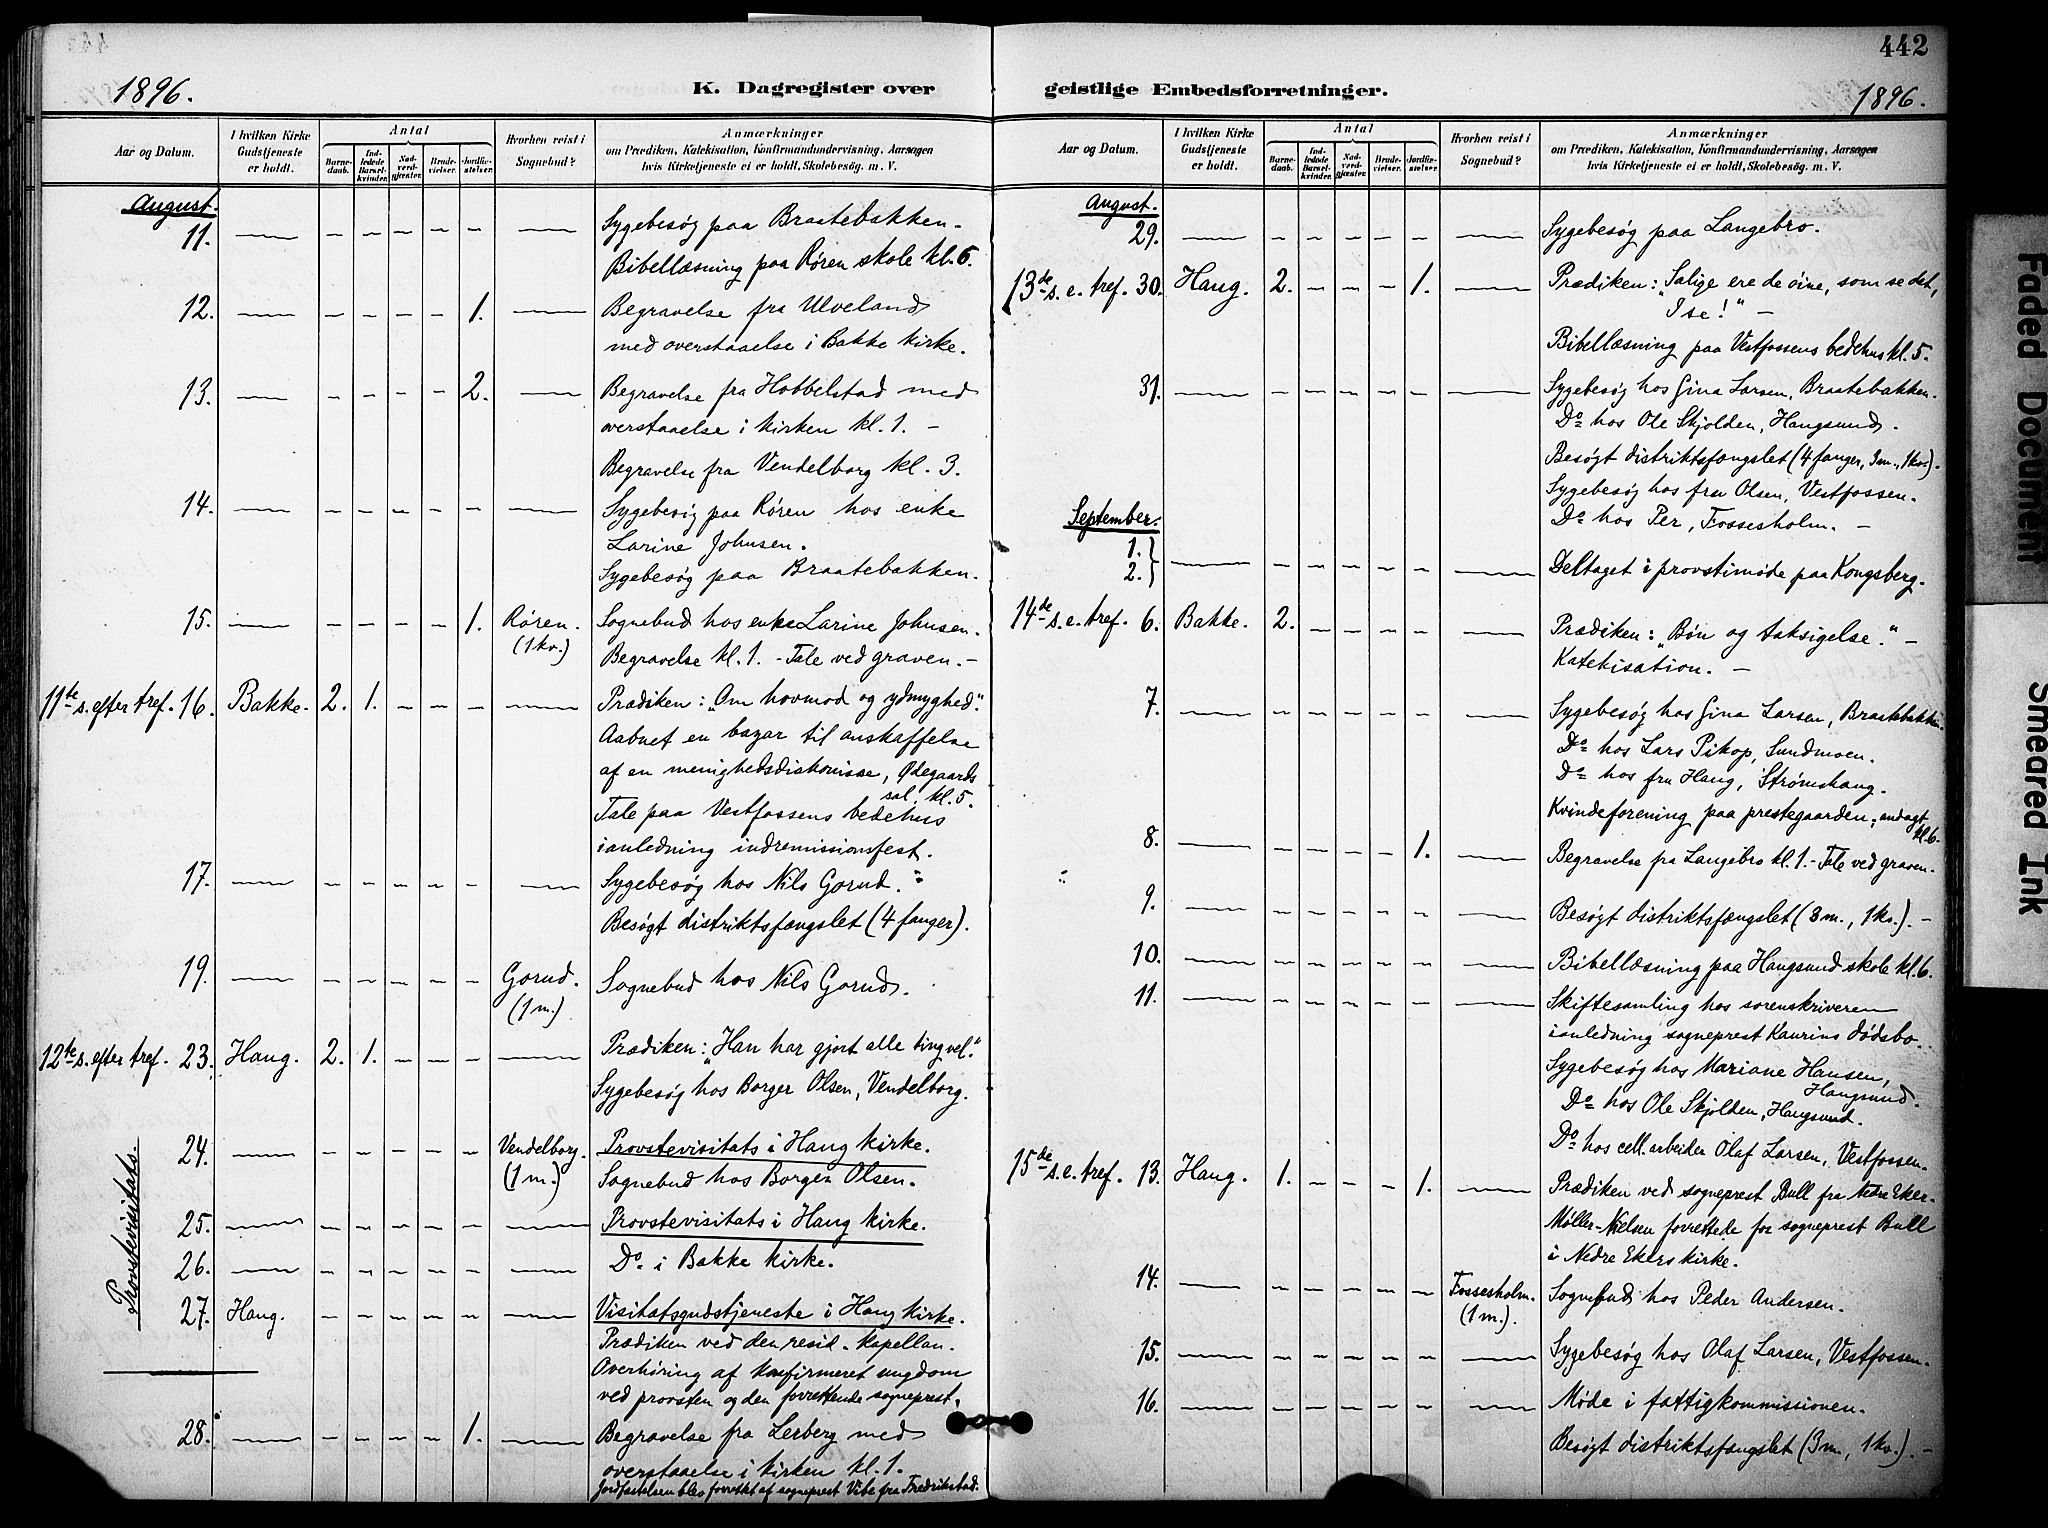 442
1896.
K. Dagregister over
Aar og Datum.
I hvilken Kirke Gudstjeneste er holdt.
Antal
Barnedaab.
Indledede Barselkvinder.
Nadverdgjæster.
Brudevielser.
Jordfæstelser.
Hvorhen reist i Sognebud?
Anmærkninger
om Prædiken, Katekisation, Konfirmandundervisning, Aarsagen
hvis Kirketjeneste ei er holdt, Skolebesøg. m. V.
August.
11. Sygebesøg paa Braatebakken.
Bibellæsning paa Røren skole kl. 6.
12. — — — — 1. — Begravelse fra Ulveland
med overstaaelse i Bakke kirke.
13. — — — — 2. — Begravelse fra Hobbelstad med
overstaaelse i kirken kl. 1. —
Begravelse fra Vendelborg kl. 3.
14. — — — — — — Sygebesøg paa Røren hos enke
Larine Johnsen.
Sygebesøg paa Braatebakken.
15. — — — — 1. Røren. Sognebud hos enke Larine Johnsen.
(1 kv.) Begravelse kl. 1. - Tale ved graven. —
11te s. efter tref. 16. Bakke. 2. 1. — — — — Prædiken: „Om hovmod og ydmyghed".
Aabnet en bazar til anskaffelse
af en menighedsdiakonisse, Ødegaards
sal. kl. 5.
Tale paa Vestfossens bedehus
ianledning indremissionsfest.
17. — — — — — — Sygebesøg hos Nils Gorud.
Besøgt distriktsfængslet (4 fanger).
19. — — — — — Gorud. Sognebud hos Nils Gorud.
(1 m.)
12te s. efter tref. 23. Haug. 2. 1. — — — — Prædiken: „Han har gjort alle ting vel."
Sygebesøg hos Borger Olsen, Vendelborg.
Provstevisitats.
24. — — — — — Vendelborg. Provstevisitats i Haug kirke.
(1 m.) Sognebud hos Borger Olsen.
25. — — — — — — Provstevisitats i Haug kirke.
26. — — — — — — Do. i Bakke kirke.
27. Haug. — — — — — — Visitatsgudstjeneste i Haug kirke.
Prædiken ved den resid. kapellan.
Overhøring af konfirmeret ungdom
ved provsten og den forrettende sogneprest.
28. — — — — 1. — Begravelse fra Lerberg med
overstaaelse i kirken kl. 1.
Jordfæstelsen blev forrettet af sogneprest Vibe fra Fredrikstad.
geistlige Embedsforretninger.
1896.
Aar og Datum.
I hvilken Kirke Gudstjeneste er holdt.
Antal
Barnedaab.
Indledede Barselkvinder.
Nadverdgjæster.
Brudevielser.
Jordfæstelser.
Hvorhen reist i Sognebud?
Anmærkninger
om Prædiken, Katekisation, Konfirmandundervisning, Aarsagen
hvis Kirketjeneste ei er holdt, Skolebesøg. m. V.
August.
29. — — — — — — Sygebesøg paa Langebro.
13de s. e. tref. 30. Haug. 2. — — — 1. — Prædiken: „Salige ere de øine, som se det,
I se!" —
Bibellæsning paa Vestfossens bedehus kl. 5.
31. — — — — — — Sygebesøg hos Gina Larsen, Braatebakken.
Do hos Ole Skjolden, Haugsund.
Besøgt distriktsfængslet (4 fanger, 3 m., 1 kv.).
Sygebesøg hos fru Olsen, Vestfossen.
Do hos Per, Fossesholm. —
September.
1. }
2. } — — — — — — Deltaget i provstimøde paa Kongsberg.
14de s. e. tref. 6. Bakke. 2. — — — — — Prædiken: „Bøn og taksigelse." —
Katekisation. —
7. — — — — — — Sygebesøg hos Gina Larsen, Braatebakken.
Do hos Lars Pikop, Sundmoen.
Do hos fru Haug, Strømshaug.
Kvindeforening paa prestegaarden; andagt
kl. 6.
8. — — — — 1. — Begravelse fra Langebro kl. 1. - Tale ved graven.
9. — — — — — — Besøgt distriktsfængslet (3 m., 1 kv.). —
10. — — — — — — Bibellæsning paa Haugsund skole kl. 6.
11. — — — — — — Skiftesamling hos sorenskriveren
ianledning sogneprest Kaurins dødsbo.
Sygebesøg hos Mariane Hansen,
Haugsund.
Do hos Ole Skjolden, Haugsund.
Do hos cell. arbeider Olaf Larsen, Vestfossen.
15de s. e. tref. 13. Haug. 1. — — — 1. — Prædiken ved sogneprest Bull fra Nedre Eker.
Møller-Nielsen forrettede for sogneprest Bull
i Nedre Ekers kirke.
14. — — — — — Fossesholm. Sognebud hos Peder Andersen.
(1 m.).
15. — — — — — — Sygebesøg hos Olaf Larsen, Vestfossen.
16. — — — — — — Møde i fattigkommissionen.
Besøgt distriktsfængslet (3 m., 1 kv.). —
Faded Document
Smeared Ink